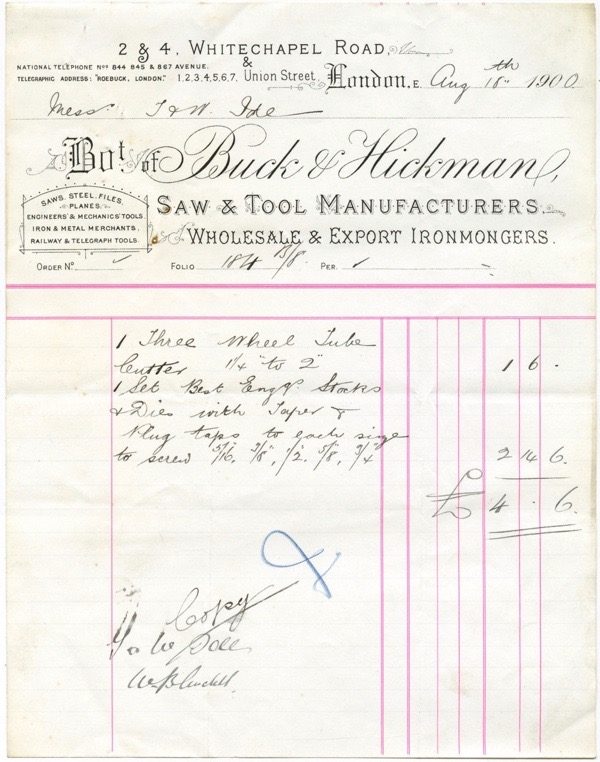 2 & 4, WHITECHAPEL ROAD,
&
NATIONAL TELEPHONE Nos 844 845 & 867 AVENUE.
TELEGRAPHIC ADDRESS: "ROEBUCK, LONDON."
1,2,3,4,5,6,7, Union Street, London, E. Aug 18th 1900
Messrs T & W. Ide
Bot. of Buck & Hickman,
SAW & TOOL MANUFACTURERS.
WHOLESALE & EXPORT IRONMONGERS.
SAWS, STEEL, FILES,
PLANES,
ENGINEERS' & MECHANICS' TOOLS.
IRON & METAL MERCHANTS,
RAILWAY & TELEGRAPH TOOLS.
ORDER No. FOLIO 184 PER.
1 Three Wheel Tube
Cutter 1/4" to 2" 1 6 .
1 Set Best Engrs. Stocks
& Dies with Taper &
Plug taps to each size
to screw 5/16. 3/8", 1/2. 5/8, 3/4" 2 14 6.
£ 4 . 6.
Copy